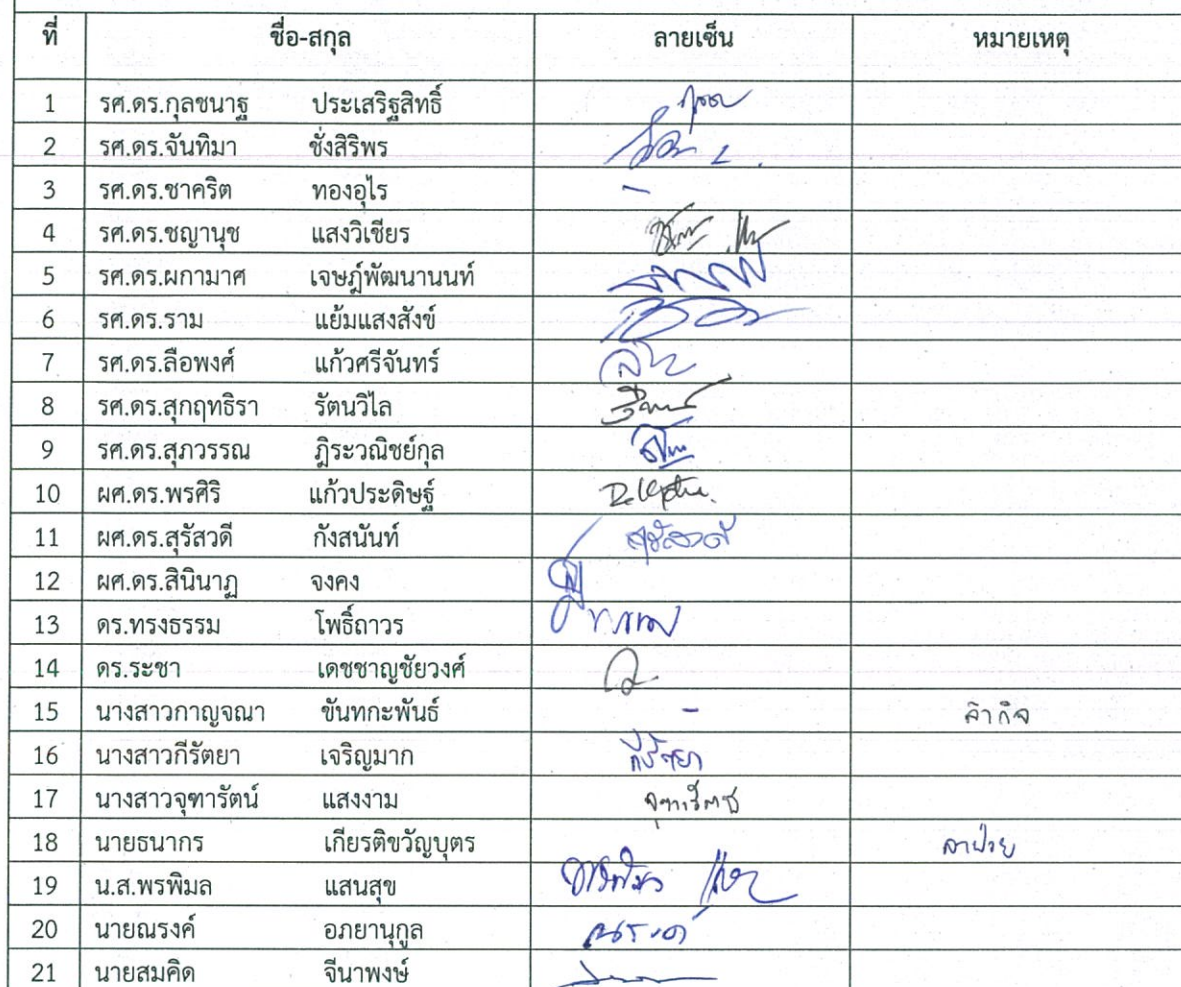 ที่ ชื่อ-สกุล ลายเซ็น หมายเหตุ
1 รศ.ดร.กุลชนาฐ ประเสริฐสิทธิ์
2 รศ.ดร.จันทิมา ชั่งสิริพร
3 รศ.ดร.ชาคริต ทองอุไร -
4 รศ.ดร.ชญานุช แสงวิเชียร
5 รศ.ดร.ผกามาศ เจษฎ์พัฒนานนท์
6 รศ.ดร.ราม แย้มแสงสังข์
7 รศ.ดร.ลือพงศ์ แก้วศรีจันทร์
8 รศ.ดร.สุกฤทธิรา รัตนวิไล
9 รศ.ดร.สุภวรรณ ฎิระวณิชย์กุล
10 ผศ.ดร.พรศิริ แก้วประดิษฐ์
11 ผศ.ดร.สุรัสวดี กังสนันท์ สุรัสวดี
12 ผศ.ดร.สินินาฏ จงคง
13 ดร.ทรงธรรม โพธิ์ถาวร
14 ดร.ระชา เดชชาญชัยวงศ์
15 นางสาวกาญจณา ขันทกะพันธ์ - ลากิจ
16 นางสาวกีรัตยา เจริญมาก กีรัตยา
17 นางสาวจุฑารัตน์ แสงงาม จุฑารัตน์
18 นายธนากร เกียรติขวัญบุตร ลาป่วย
19 น.ส.พรพิมล แสนสุข
20 นายณรงค์ อภยานุกูล ณรงค์
21 นายสมคิด จีนาพงษ์